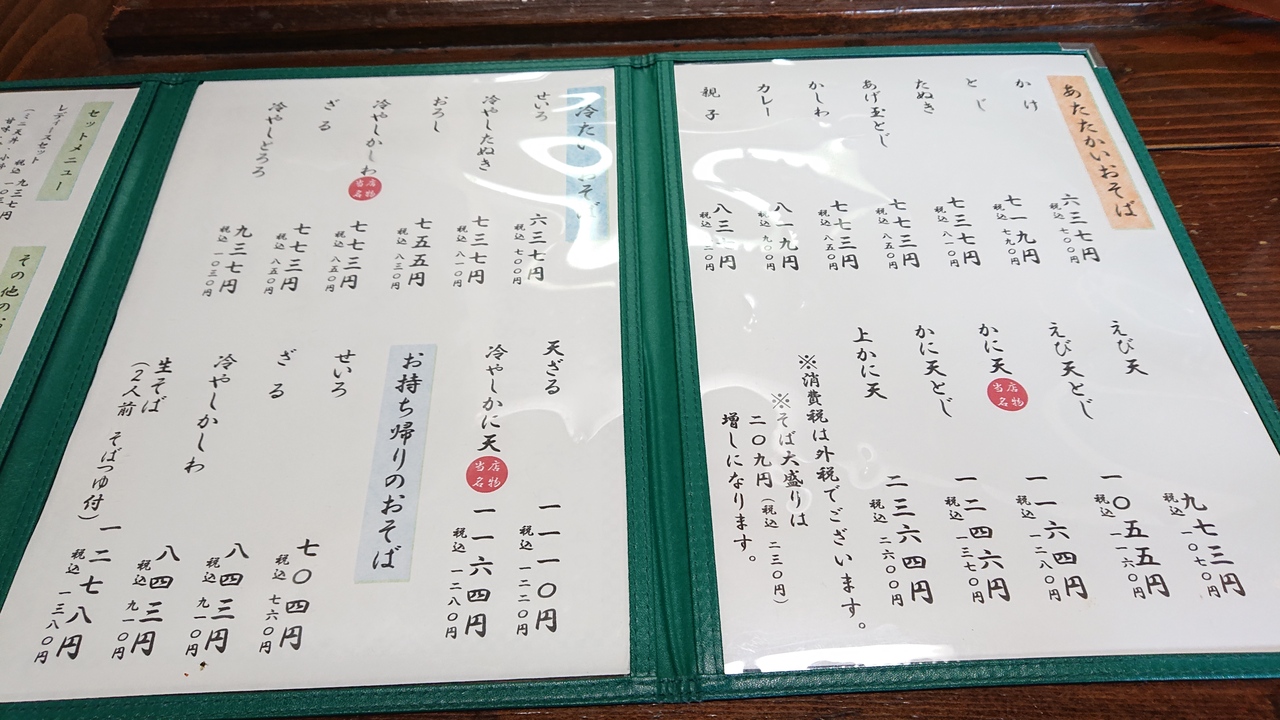 あたたかいおそば
かけ 六三七円
税込 七〇〇円
とじ 七一九円
税込 七九〇円
たぬき 七三七円
税込 八一〇円
あげ玉とじ 七七三円
税込 八五〇円
かしわ 七七三円
税込 八五〇円
カレー 八一九円
税込 九〇〇円
親子 八三七円
税込 二〇円
えび天 九七三円
税込 一〇七〇円
えび天とじ 一〇五五円
税込 一一六〇円
かに天 当店名物 一一六四円
税込 一二八〇円
かに天とじ 一二四六円
税込 一三七〇円
上かに天 二三六四円
税込 二六〇〇円
※消費税は外税でございます。
※そば大盛りは
二〇九円(税込 二三〇円)
増しになります。
冷たいおそば
せいろ 六三七円
税込 七〇〇円
冷やしたぬき 七三七円
税込 八一〇円
おろし 七五五円
税込 八三〇円
冷やしかしわ 当店名物 七七三円
税込 八五〇円
ざる 七七三円
税込 八五〇円
冷やしとろろ 九三七円
税込 一〇三〇円
天ざる 一一一〇円
税込 一二二〇円
冷やしかに天 当店名物 一一六四円
税込 一二八〇円
お持ち帰りのおそば
せいろ 七〇四円
税込 七六〇円
ざる 八四三円
税込 九一〇円
冷やしかしわ 八四三円
税込 九一〇円
生そば
(2人前 そばつゆ付) 一二七八円
税込 一三八〇円
セットメニュー
レディースセット
九三七円
その他の